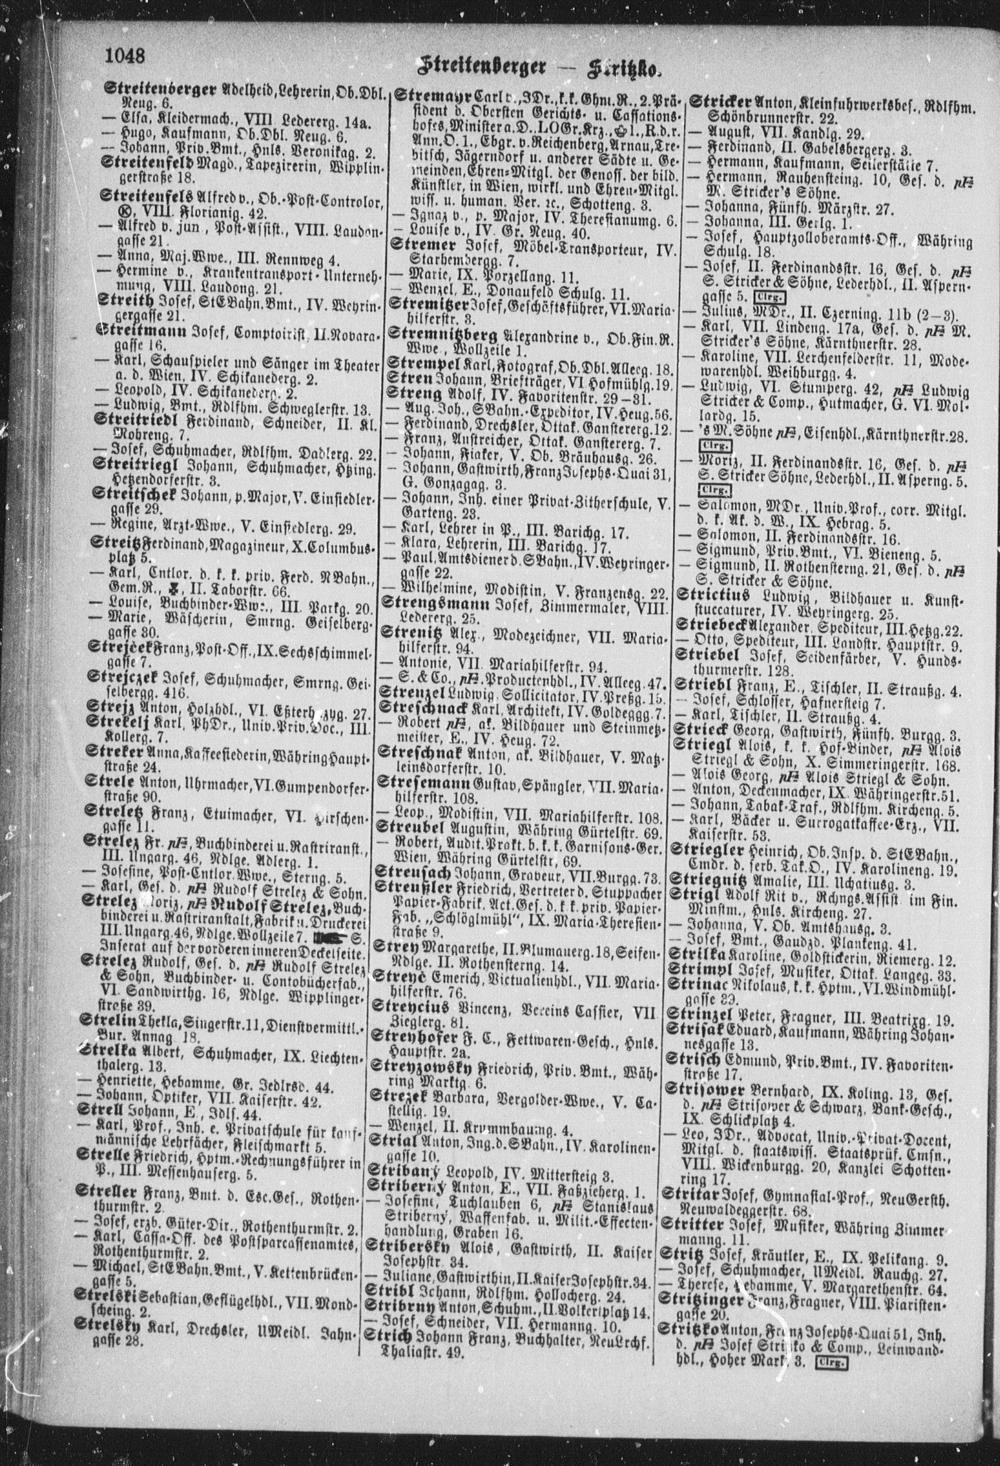 1048
Streitenberger — Stritzko.
Streitenberger Adelheid, Lehrerin, Ob.Dbl.
Neug. 6.
— Elsa, Kleidermach., VIII Lederg. 14a.
— Hugo, Kaufmann, Ob.Dbl. Neug. 6.
— Johann, Priv.Bmt., Hnls. Veronikag. 2.
Streitenfeld Magd., Tapezirerin, Wipplin-
gerstraße 18.
Streitenfels Alfred v., Ob.-Post-Controlor,
VIII. Florianig. 42.
— Alfred v. jun., Post-Assist., VIII. Laudon-
gasse 21.
— Anna, Maj.Wwe., III. Rennweg 4.
— Hermine v., Krankentransport-Unterneh-
mung, VIII. Laudong. 21.
Streith Josef, StEBahn.Bmt., IV. Weyrin-
gergasse 21.
Streitmann Josef, Comptoirist, II. Novara-
gasse 16.
— Karl, Schauspieler und Sänger im Theater
a. d. Wien, IV. Schikanederg. 2.
— Leopold, IV. Schikanederg. 2.
— Ludwig, Bmt., Rdlfhm. Schweglerstr. 13.
Streitriedl Ferdinand, Schneider, II. Kl.
Mohreng. 7.
— Josef, Schuhmacher, Rdlfhm. Dadlerg. 22.
Streitriegl Johann, Schuhmacher, Htzing.
Hetzendorferstr. 3.
Streitschek Johann, p. Major, V. Einsiedler-
gasse 29.
— Regine, Arzt-Wwe., V. Einsiedlerg. 29.
Streitz Ferdinand, Magazineur, X. Columbus-
platz 5.
— Karl, Cntlor. d. k. k. priv. Ferd. NBahn.,
Gem.R., II. Taborstr. 66.
— Louise, Buchbinder-Wwe., III. Parkg. 20.
— Marie, Wäscherin, Smrng. Geiselberg-
gasse 30.
Strejček Franz, Post-Off., IX. Sechsschimmel-
gasse 7.
Strejczek Josef, Schuhmacher, Smrng. Gei-
selbergg. 416.
Strejz Anton, Holzhdl., VI. Eßterházyg. 27.
Strekelj Karl, PhDr., Univ.Priv.Doc., III.
Kollerg. 7.
Streker Anna, Kaffeesiederin, Währing Haupt-
straße 24.
Strele Anton, Uhrmacher, VI. Gumpendorfer-
straße 90.
Streletz Franz, Etuimacher, VI. Hirschen-
gasse 11.
Strelez Fr. pH, Buchbinderei u. Rastriranst.,
III. Ungarg. 46, Ndlge. Adlerg. 1.
— Josefine, Post-Cntlor.Wwe., Sterng. 5.
— Karl, Ges. d. pH Rudolf Strelez & Sohn.
Strelez Moriz, pH Rudolf Strelez, Buch-
binderei u. Rastriranstalt, Fabrik u. Druckerei
III. Ungarg. 46, Ndlge. Wollzeile 7. S.
Inserat auf der vorderen inneren Deckelseite.
Strelez Rudolf, Ges. d. pH Rudolf Strelez
& Sohn, Buchbinder- u. Contobücherfab.,
VI. Sandwirthg. 16, Ndlge. Wipplinger-
straße 39.
Strelin Thekla, Singerstr. 11, Dienstvermittl.-
Bur. Annag. 18.
Strelka Albert, Schuhmacher, IX. Liechten-
thalerg. 13.
— Henriette, Hebamme, Gr. Jedlrsd. 44.
— Johann, Optiker, VII. Kaiserstr. 42.
Strell Johann, E., Jdls. 44.
— Karl, Prof., Inh. e. Privatschule für kauf-
männische Lehrfächer, Fleischmarkt 5.
Strelle Friedrich, Hptm.-Rechnungsführer in
P., III. Messenhauserg. 5.
Streller Franz, Bmt. d. Esc.Ges., Rothen-
thurmstr. 2.
— Josef, erzb. Güter-Dir., Rothenthurmstr. 2.
— Karl, Cassa-Off. des Postsparcassenamtes,
Rothenthurmstr. 2.
— Michael, StEBahn.Bmt., V. Kettenbrücken-
gasse 5.
Strelski Sebastian, Geflügelhdl., VII. Mond-
scheing. 2.
Strelsky Karl, Drechsler, UMeidl. Jahn-
gasse 28.
Stremayr Carl v., JDr., k.k. Ghm.R., 2. Prä-
sident d. Obersten Gerichts- u. Cassations-
hofes, Minister a. D., LOGr.Krz., 1., R.d.r.
Ann.O. 1., Ebgr. v. Reichenberg, Arnau, Tre-
bitsch, Jägerndorf u. anderer Städte u. Ge-
meinden, Ehren-Mitgl. der Genoss. der bild.
Künstler, in Wien, wirkl. und Ehren-Mitgl.
wiss. u. human. Ver. ꝛc., Schotteng. 3.
— Ignaz v., p. Major, IV. Theresianumg. 6.
— Louise v., IV. Gr. Neug. 40.
Stremer Josef, Möbel-Transporteur, IV.
Starhembergg. 7.
— Marie, IX. Porzellang. 11.
— Wenzel, E., Donaufeld Schulg. 11.
Stremitzer Josef, Geschäftsführer, VI. Maria-
hilferstr. 3.
Stremnitzberg Alexandrine v., Ob.Fin.R.
Wwe., Wollzeile 1.
Strempel Karl, Fotograf, Ob.Dbl. Alleeg. 18.
Stren Johann, Briefträger, VI Hofmühlg. 19.
Streng Adolf, IV. Favoritenstr. 29—31.
— Aug. Joh., SBahn.-Expeditor, IV. Heug. 56.
— Ferdinand, Drechsler, Ottak. Gansterg. 12.
— Franz, Anstreicher, Ottak. Gansterg. 7.
— Johann, Fiaker, V. Ob. Bräuhausg. 26.
— Johann, Gastwirth, Franz Josephs-Quai 31,
G. Gonzagag. 3.
— Johann, Inh. einer Privat-Zitherschule, V.
Garteng. 23.
— Karl, Lehrer in P., III. Barichg. 17.
— Klara, Lehrerin, III. Barichg. 17.
— Paul, Amtsdiener d. SBahn., IV. Weyringer-
gasse 22.
— Wilhelmine, Modistin, V. Franzensg. 22.
Strengsmann Josef, Zimmermaler, VIII.
Ledererg. 25.
Strenitz Alex., Modezeichner, VII. Maria-
hilferstr. 94.
— Antonie, VII. Mariahilferstr. 94.
— S. & Co., pH, Productenhdl., IV. Alleeg. 47.
Strenzel Ludwig, Sollicitator, IV. Preßg. 15.
Streschnack Karl, Architekt, IV. Goldeggg. 7.
— Robert pH, ak. Bildhauer und Steinmetz-
meister, E., IV. Heug. 72.
Streschnak Anton, ak. Bildhauer, V. Matz-
leinsdorferstr. 10.
Stresemann Gustav, Spängler, VII. Maria-
hilferstr. 108.
— Leop., Modistin, VII. Mariahilferstr. 108.
Streubel Augustin, Währing Gürtelstr. 69.
— Robert, Audit.Prakt. b. k. k. Garnisons-Ger.
Wien, Währing Gürtelstr. 69.
Streusach Johann, Graveur, VII. Burgg. 73.
Streußler Friedrich, Vertreter d. Stuppacher
Papier-Fabrik, Act.Ges. d. k. k. priv. Papier-
Fab. „Schlöglmühl", IX. Maria-Theresien-
straße 9.
Strey Margarethe, II. Blumauerg. 18, Seifen-
Ndlge. II. Rothensterng. 14.
Streyč Emerich, Victualienhdl., VII. Maria-
hilferstr. 76.
Streycius Vincenz, Vereins Cassier, VII
Zieglerg. 81.
Streyhofer F. C., Fettwaren-Gesch., Hnls.
Hauptstr. 2a.
Streyzowsky Friedrich, Priv. Bmt., Wäh-
ring Marktg. 6.
Strezek Barbara, Vergolder-Wwe., V. Ca-
stellig. 19.
— Wenzel, II. Krummbaumg. 4.
Strial Anton, Ing. d. SBahn., IV. Karolinen-
gasse 10.
Stribany Leopold, IV. Mittersteig 3.
Striberny Anton, E., VII. Faßzieherg. 1.
— Josefine, Tuchlauben 6, pH Stanislaus
Striberny, Waffenfab. u. Milit.-Effecten-
handlung, Graben 16.
Stribersky Alois, Gastwirth, II. Kaiser
Josephstr. 34.
— Juliane, Gastwirthin, II. Kaiser Josephstr. 34.
Stribl Johann, Rdlfhm. Hollocherg. 24.
Stribrny Anton, Schuhm., II. Volkertplatz 14.
— Josef, Schneider, VII. Hermanng. 10.
Strich Johann Franz, Buchhalter, NeuLrchf.
Thaliastr. 49.
Stricker Anton, Kleinfuhrwerksbes., Rdlfhm.
Schönbrunnerstr. 22.
— August, VII. Kandlg. 29.
— Ferdinand, II. Gabelsbergerg. 3.
— Hermann, Kaufmann, Seilerstätte 7.
— Hermann, Rauhensteing. 10, Ges. d. pH
M. Stricker's Söhne.
— Johanna, Fünfh. Märzstr. 27.
— Johanna, III. Gerlg. 1.
— Josef, Hauptzolloberamts-Off., Währing
Schulg. 18.
— Josef, II. Ferdinandsstr. 16, Ges. d. pH
S. Stricker & Söhne, Lederhdl., II. Aspern-
gasse 5. Clrg.
— Julius, MDr., II. Czerning. 11b (2—3).
— Karl, VII. Lindeng. 17a, Ges. d. pH M.
Stricker's Söhne, Kärnthnerstr. 28.
— Karoline, VII. Lerchenfelderstr. 11, Mode-
warenhdl. Weihburgg. 4.
— Ludwig, VI. Stumperg. 42, pH Ludwig
Stricker & Comp., Hutmacher, G. VI. Mol-
lardg. 15.
— 's M. Söhne pH, Eisenhdl., Kärnthnerstr. 28.
Clrg.
— Moriz, II. Ferdinandsstr. 16, Ges. d. pH
S. Stricker Söhne, Lederhdl., II. Asperng. 5.
Clrg.
— Salomon, MDr., Univ.Prof., corr. Mitgl.
d. k. Ak. d. W., IX. Hebrag. 5.
— Salomon, II. Ferdinandsstr. 16.
— Sigmund, Priv.Bmt., VI. Bieneng. 5.
— Sigmund, II. Rothensterng. 21, Ges. d. pH
S. Stricker & Söhne.
Strictius Ludwig, Bildhauer u. Kunst-
stuccaturer, IV. Weyringerg. 25.
Striebeck Alexander, Spediteur, III. Hetzg. 22.
— Otto, Spediteur, III. Landstr. Hauptstr. 9.
Striebel Josef, Seidenfärber, V. Hunds-
thurmerstr. 128.
Striebl Franz, E., Tischler, II. Straußg. 4.
— Josef, Schlosser, Hafnersteig 7.
— Karl, Tischler, II. Straußg. 4.
Strieck Georg, Gastwirth, Fünfh. Burgg. 3.
Striegl Alois, k. k. Hof-Binder, pH Alois
Striegl & Sohn, X. Simmeringerstr. 168.
— Alois Georg, pH Alois Striegl & Sohn.
— Anton, Deckenmacher, IX. Währingerstr. 51.
— Johann, Tabak-Traf., Rdlfhm. Kircheng. 5.
— Karl, Bäcker u. Surrogatkaffee-Erz., VII.
Kaiserstr. 53.
Striegler Heinrich, Ob.Insp. d. StEBahn.,
Cmdr. d. serb. Tak.O., IV. Karolineng. 19.
Striegnitz Amalie, III. Uchatiusg. 3.
Strigl Adolf Rit v., Rchngs.Assist im Fin.
Minstm., Hnls. Kircheng. 27.
— Johanna, V. Ob. Amtshausg. 3.
— Josef, Bmt., Gaudzd. Plankeng. 41.
Strilka Karoline, Goldstickerin, Riemerg. 12.
Strimpl Josef, Musiker, Ottak. Langeg. 33.
Strinac Nikolaus, k. k. Hptm., VI. Windmühl-
gasse 29.
Strinzel Peter, Fragner, III. Beatrixg. 19.
Strisak Eduard, Kaufmann, Währing Johan-
nesgasse 13.
Strisch Edmund, Priv.Bmt., IV. Favoriten-
straße 17.
Strisower Bernhard, IX. Koling. 13, Ges.
d. pH Strisower & Schwarz, Bank-Gesch.,
IX. Schlickplatz 4.
— Leo, JDr., Advocat, Univ.-Privat-Docent,
Mitgl. d. staatswiss. Staatsprüf. Cmsn.,
VIII. Wickenburgg. 20, Kanzlei Schotten-
ring 17.
Stritar Josef, Gymnasial-Prof., NeuGersth.
Neuwaldeggerstr. 68.
Stritter Josef, Musiker, Währing Zimmer-
manng. 11.
Stritz Josef, Kräutler, E., IX. Pelikang. 9.
— Josef, Schuhmacher, UMeidl. Rauchg. 27.
— Therese, Hebamme, V. Margarethenstr. 64.
Stritzinger Franz, Fragner, VIII. Piaristen-
gasse 20.
Stritzko Anton, Franz Josephs-Quai 51, Inh.
d. pH Josef Stritzko & Comp., Leinwand-
hdl., Hoher Markt 3. Clrg.